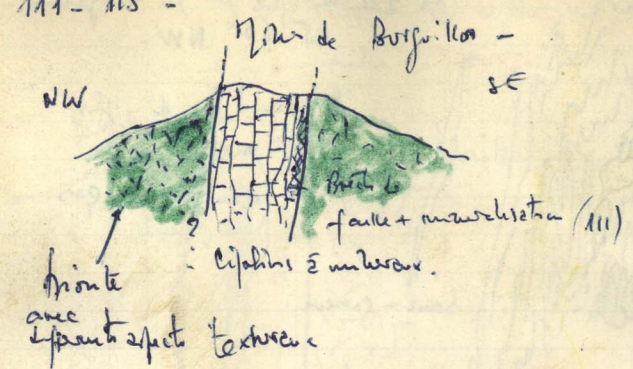 111 - 113 -
Mina de Burguillos -
NW
SE
Brèche de
faille + minéralisation (111)
?
Cipolins à minéraux.
avec
aspects texturaux